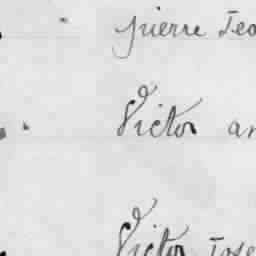 pierre Jea
Victor an
Victor Jose